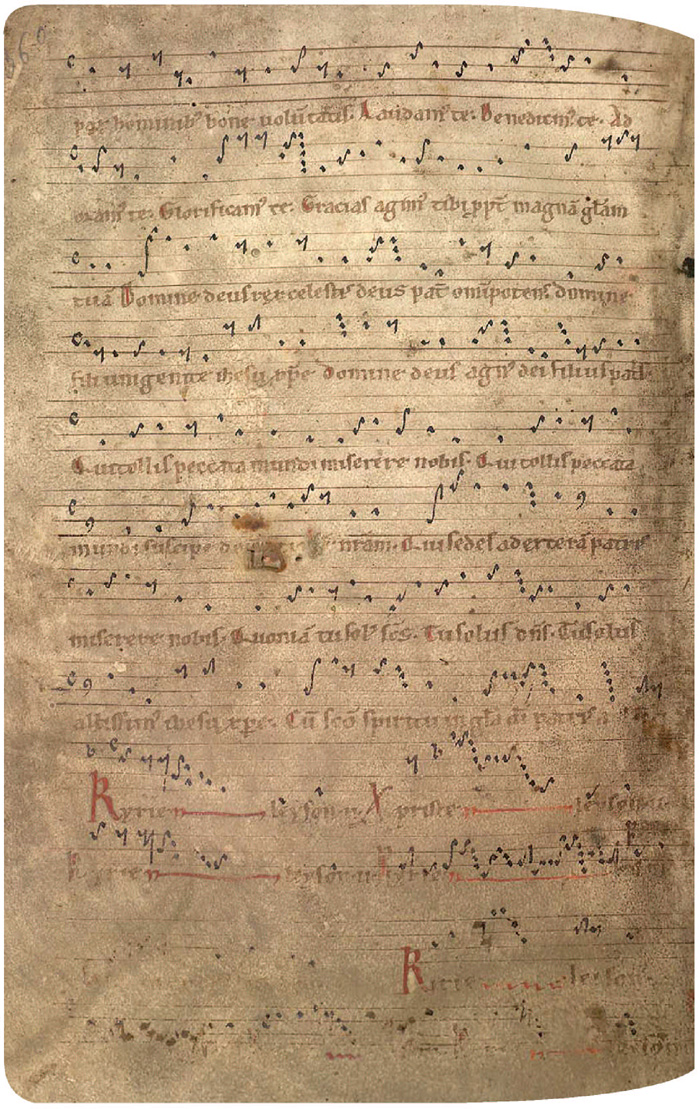 pax hominib' bone uolūtatis. Laudam' te. Benedicim' te. Ad
oram' te. Glorificam' te. Gracias agim' tibi ppt magnā glam
tuā Domine deus rex celestis deus pat omīpotens domine
fili unigenite ihesu xpe Domine deus agn' dei filius patis
Qui tollis peccata mundi miserere nobis. Qui tollis peccata
mundi suscipe nram. Qui sedes ad dexterā patris
miserere nobis. Quoniā tu sol' scs. Tu solus dns. Tu solus
altissim' ihesu xpe. Cū sco spiritu in gla di patris a
Kyrie leyson. Xpriste leyson
Kyrie leyson. Kyrie
Kyrie leyson